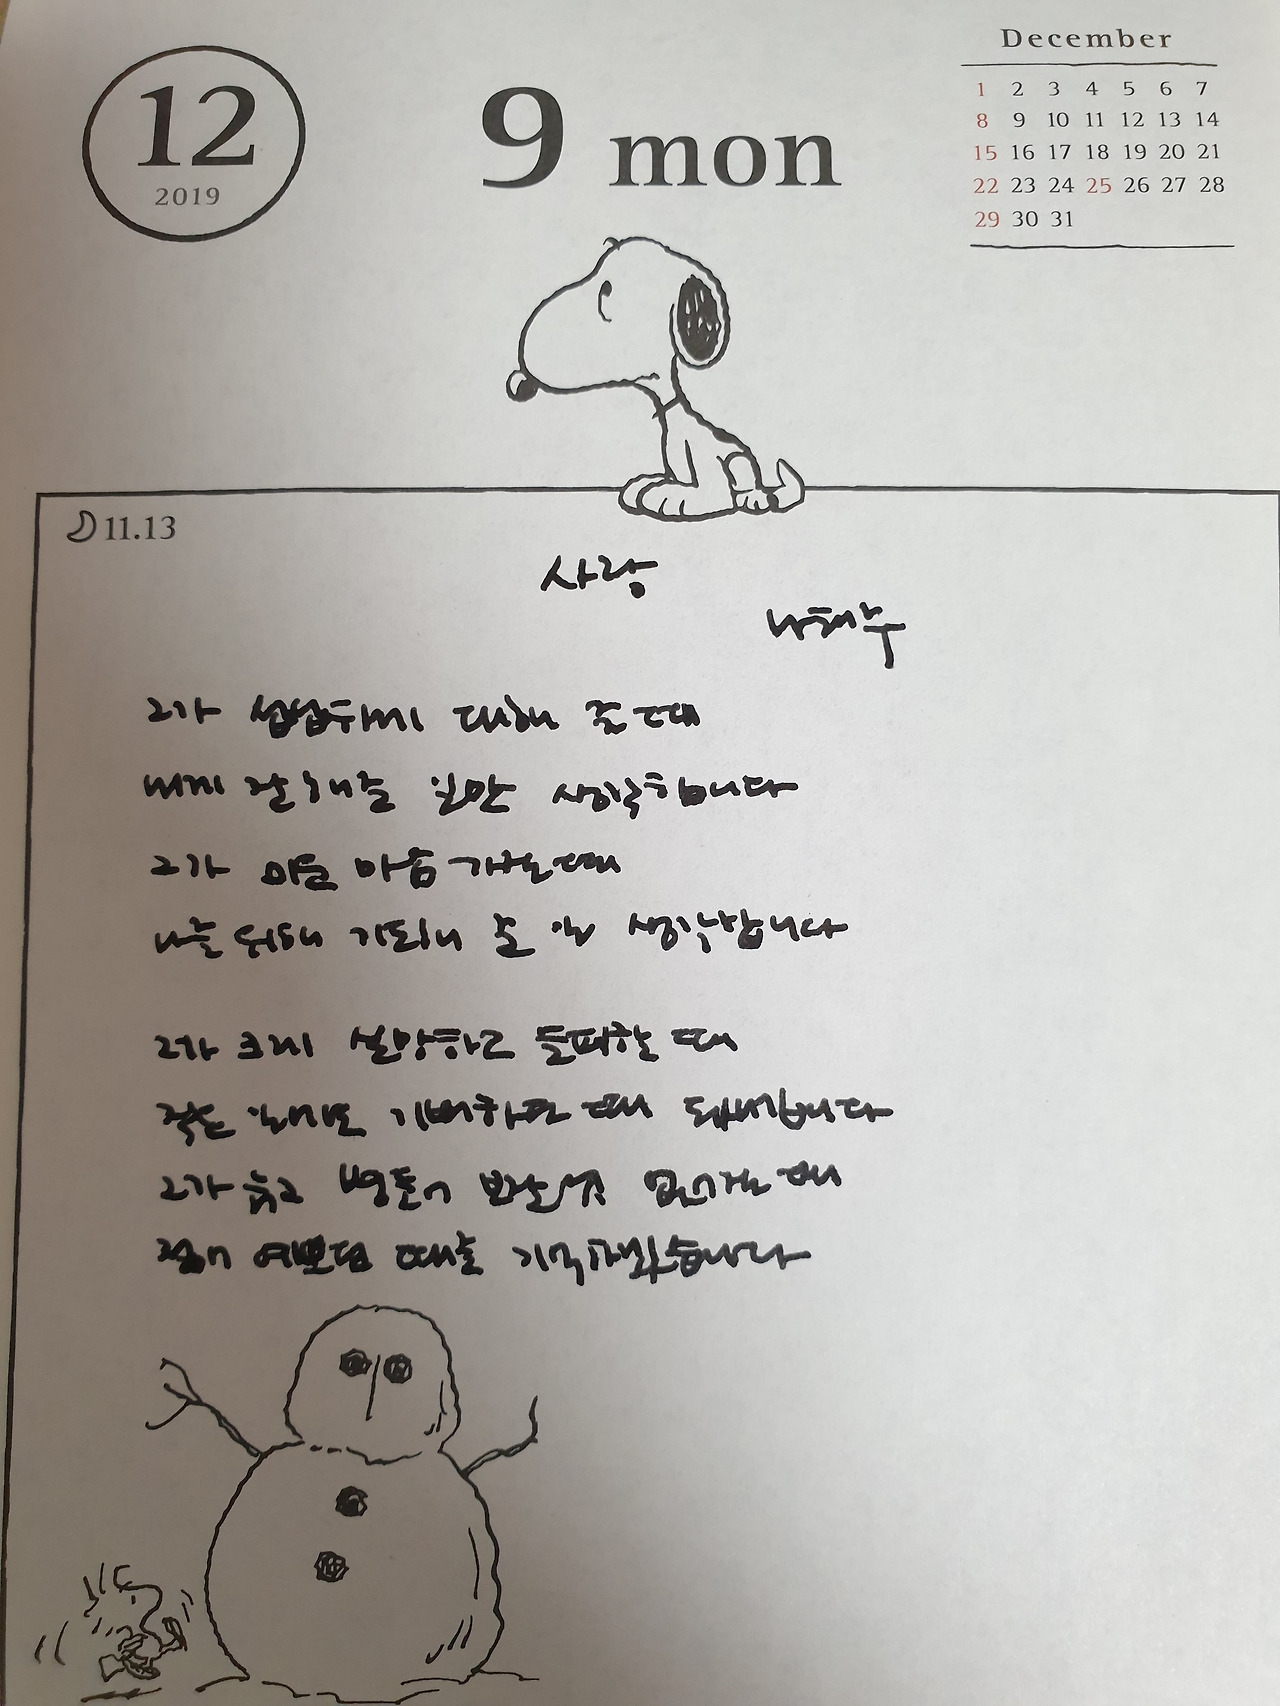 12
2019
9 mon
December
1 2 3 4 5 6 7
8 9 10 11 12 13 14
15 16 17 18 19 20 21
22 23 24 25 26 27 28
29 30 31
11.13
사랑
나해수
그가 섭섭하게 대해 줄 때
내게 잘해준 일만 생각합니다
그가 미운 마음 가는 때
나를 위해 기도해 준 일 생각합니다
그가 크게 실망하고 돌파할 때
작은 일에도 기뻐하던 때 되새깁니다
그가 늙고 병들어 반응 없어지는 때
젊어 예쁘던 때를 기억하겠습니다